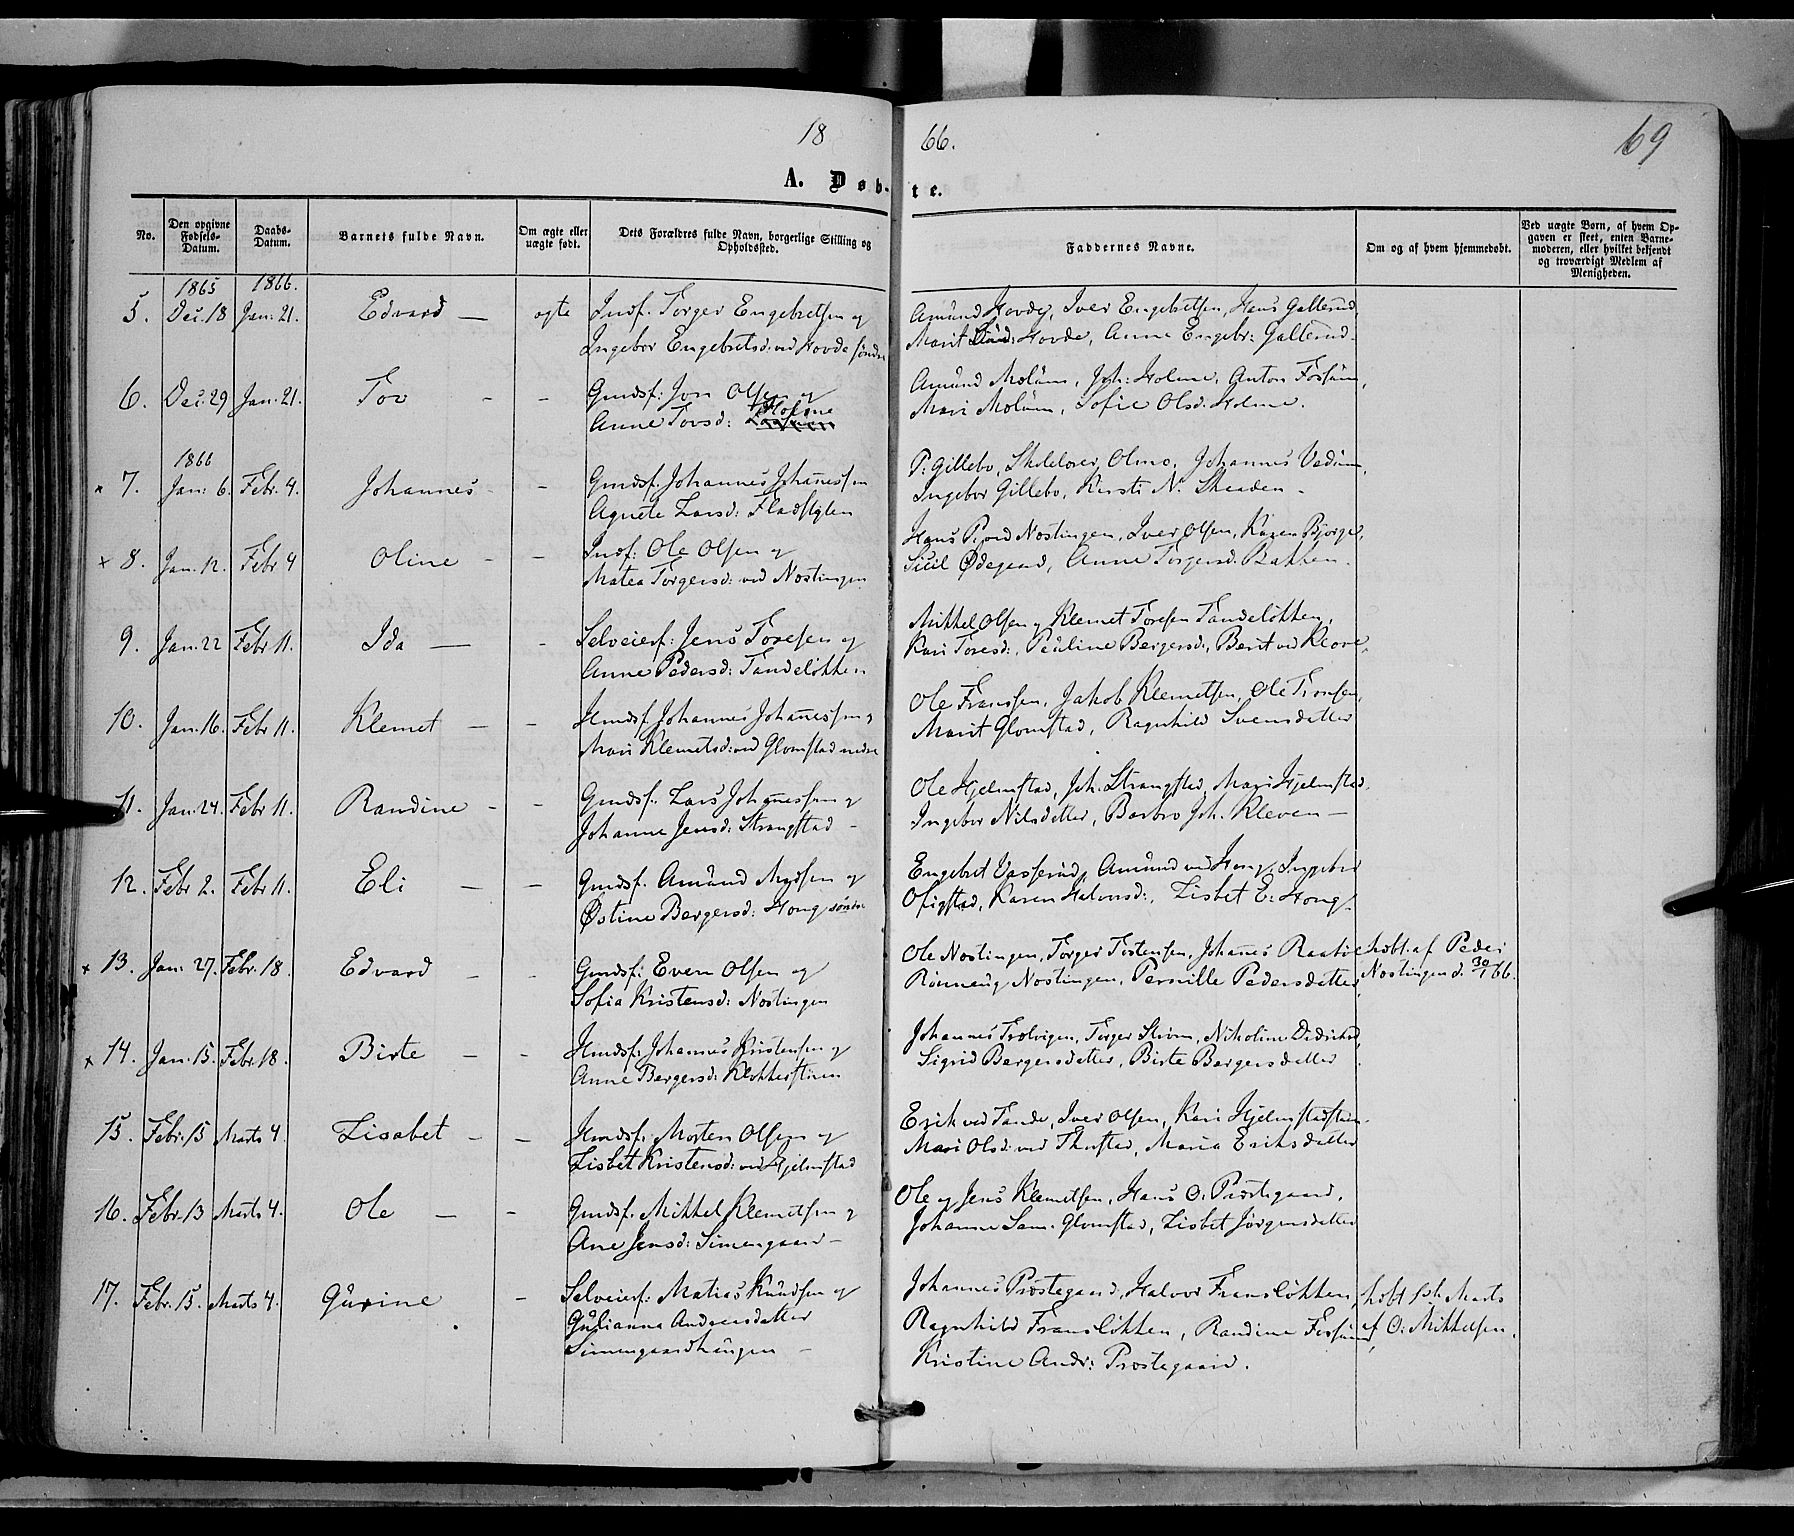 18 66. 69
A. Døb- te.
No. Den opgivne Fødsels-Datum. Daabs-Datum. Barnets fulde Navn. Om ægte eller uægte født. Dets Forældres fulde Navn, borgerlige Stilling og Opholdssted. Faddernes Navne. Om og af hvem hjemmedøbt. Ved uægte Børn, af hvem Opgaven er skeet, enten Barnemoderen, eller hvilket bekjendt og troværdigt Medlem af Menigheden.
1865 1866.
5. Dec. 18 Jan: 21. Edvard — ægte Indf. Torger Engebretsen og
Ingebor Engebretsd: ved Hovde søndre
Amund Hovde, Iver Engebretsen, Hans Galterud,
Marit Hovde, Anne Engebr: Galterud.
6. Dec. 29 Jan. 21. Tov - - Gmdsf: Jon Olsen og
Anne Tovsd: Holme
Amund Molum, Joh: Holme, Anton Fossum,
Mari Molum, Sofie Olsd: Holme.
1866
× 7. Jan: 6. Febr. 4. Johannes - - Gmdsf. Johannes Johanessen
Agnete Larsd: Fladstylen
P: Gillebo, Skolelærer Olmo, Johannes Vedum,
Ingebor Gillebo, Kersti N. Skaaden -
× 8. Jan. 12. Febr 4 Oline - - Indf: Ole Olsen og
Matea Torgersd: ved Nostingen
Hans Nostingen, Iver Olsen, Karen Bjørge,
Sicil Ødegaard, Anne Torgersd. Bakken.
9. Jan. 22 Febr. 11. Ida — - Selveierf: Jens Toresen og
Anne Pedersd: Tandeløkken
Mikkel Olsen og Klemet Toresen Tandeløkken,
Kari Toresd:, Pauline Bergersd:, Berit ved Kløve.
10. Jan. 16. Febr 11. Klemet — - Hmdsf. Johannes Johanessen og
Mari Klemetsd: ved Glomstad nedre
Ole Franssen, Jakob Klemetsen, Ole Tronsen,
Marit Glomstad, Ragnhild Svensdatter
11. Jan. 24. Febr 11. Randine - - Gmdsf. Lars Johanessen og
Johanne Jensd: Strangstad -
Ole Hjelmstad, Joh. Strangstad, Mari Hjelmstad,
Ingebor Nilsdatter, Barbro Joh. Kleven —
12. Febr 2. Febr 11. Eli — - Gmdsf. Amund og
Østine Bergersd: Hong søndre
Engebret Vasserud, Amund ved Hong, Ingebor
Ofigstad, Karen Halvorsd:, Lisbet E. Hong.
× 13. Jan. 27. Febr. 18. Edvard - - Gmdsf: Even Olsen og
Sofia Kristensd: Nostingen
Ole Nostingen, Torger Tostensen, Johanes
Rønnaug Nostingen, Pernille Pedersdatter
hdbt: af Peder
Nostingen d. 30/1 66.
× 14. Jan. 15. Febr 18. Birte - - Hmdsf: Johannes Kristensen og
Anne Bergersd: Klokkerstuen
Johannes Trolvigen, Torger Skriv, Nikoline Didriksd,
Sigrid Bergersdatter, Birte Bergersdatter
15. Febr. 15 Marts 4. Lisabet - - Hmdsf: Morten Olsen og
Lisbet Kristensd: ved Hjelmstad
Erik ved Tande, Iver Olsen, Kari Hjelmstadstuen
Mari Olsd: ved Thorstad, Maria Eriksdatter
16. Febr. 13 Marts 4. Ole — - Gmdsf. Mikkel Klemetsen og
Ane Jensd: Simengaard -
Ole og Jens Klemetsen, Hans O. Prøstegaard,
Johanne Sam. Glomstad, Lisbet Jørgensdatter
17. Febr. 15. Marts 4. Gurine - Selveierf: Matias Knudsen og
Gulianna Andersdatter
Simengaardhaugen -
Johannes Prøstegaard, Halvor Fransløkken,
Ragnhild Fransløkken, Randine Fossum,
Kristine Andr: Prøstegaard.
hdbt 1ste Marts
af O. Mikkelsen.